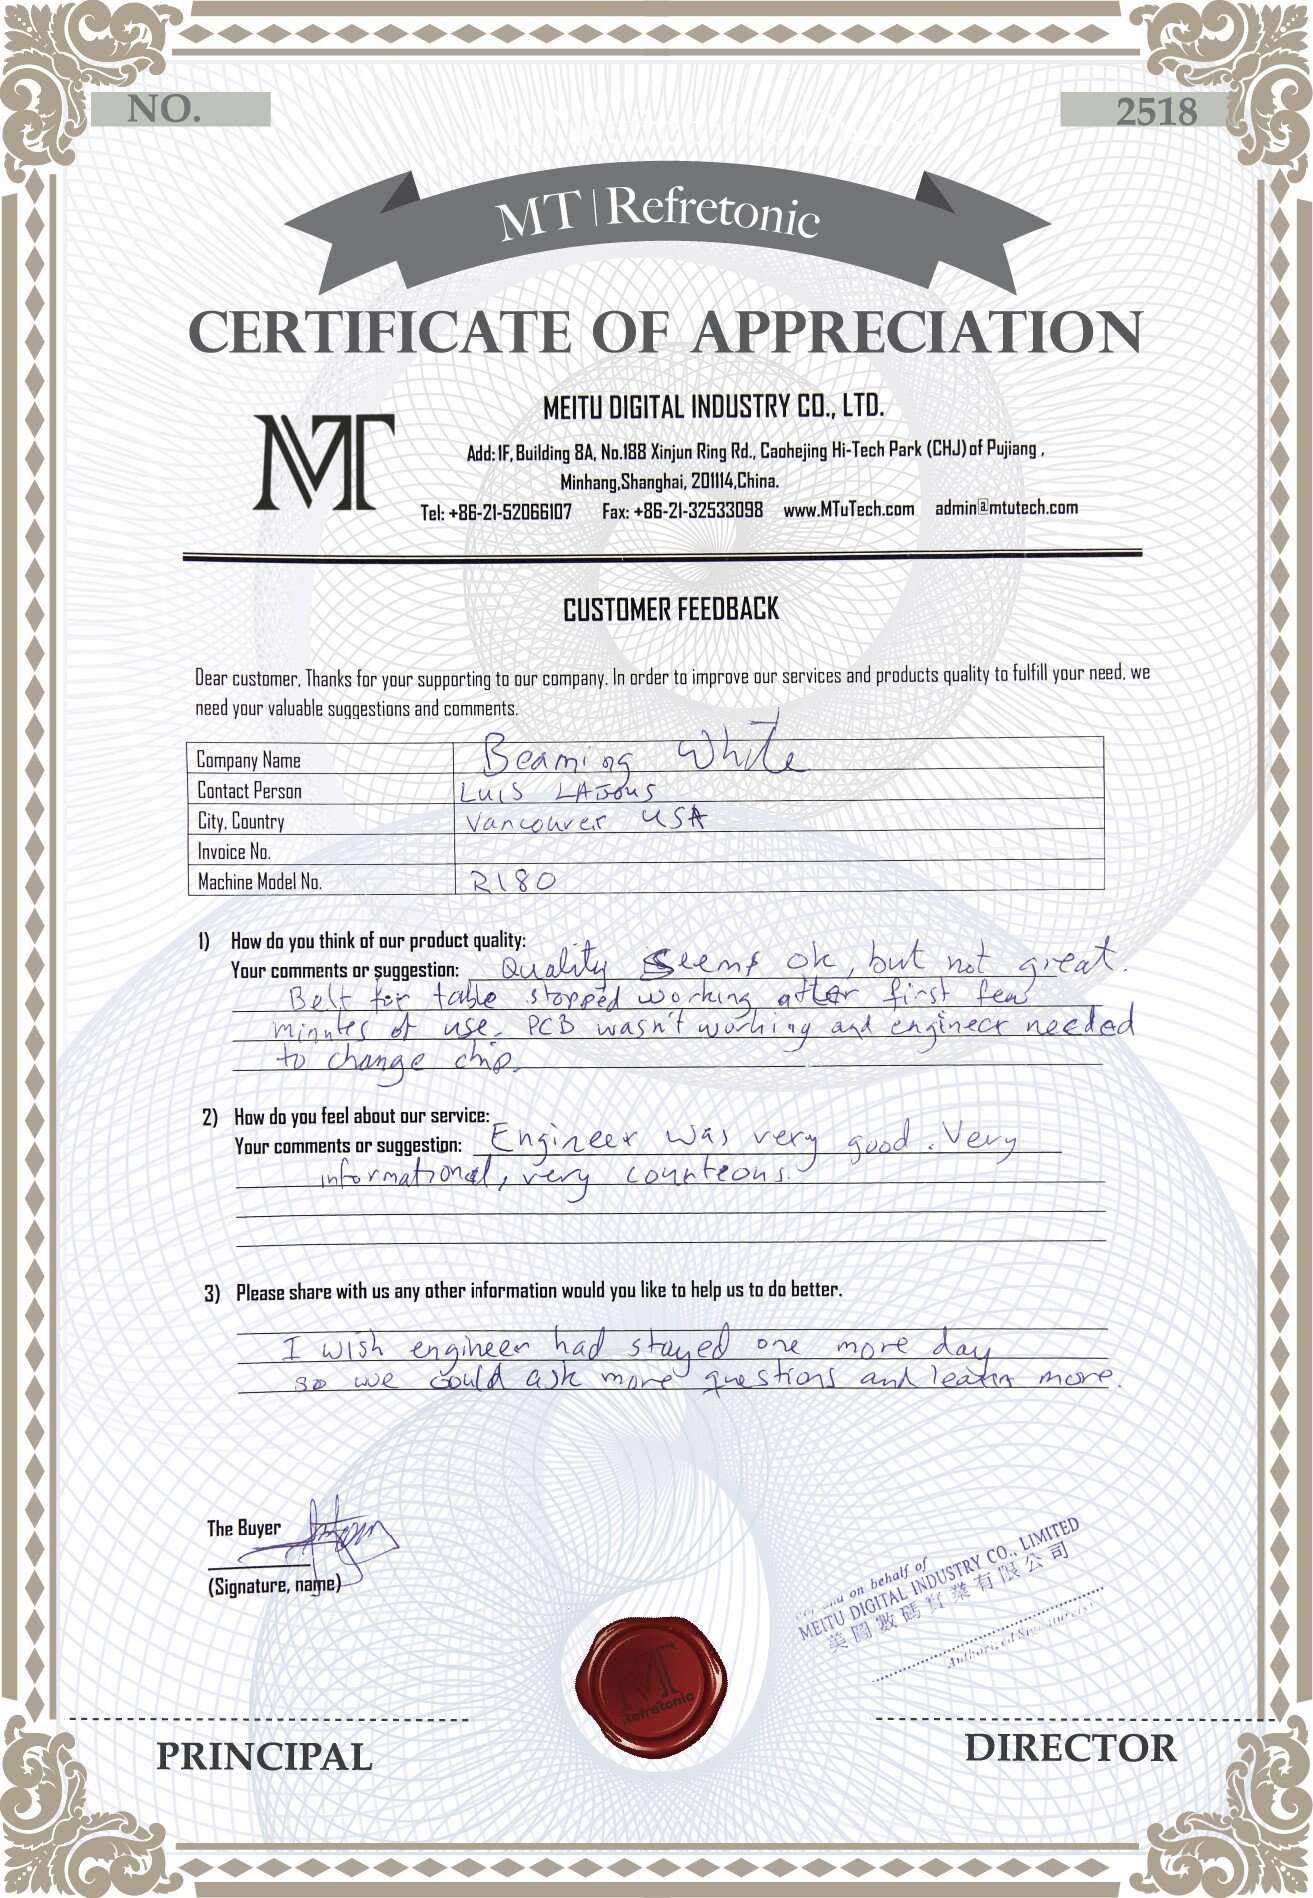 NO.
2518
MT | Refretonic
CERTIFICATE OF APPRECIATION
MT
MEITU DIGITAL INDUSTRY CO., LTD.
Add: 1F, Building 8A, No.188 Xinjun Ring Rd., Caohejing Hi-Tech Park (CHJ) of Pujiang ,
Minhang,Shanghai, 201114,China.
Tel: +86-21-52066107 Fax: +86-21-32533098 www.MTuTech.com admin@mtutech.com
CUSTOMER FEEDBACK
Dear customer, Thanks for your supporting to our company. In order to improve our services and products quality to fulfill your need, we
need your valuable suggestions and comments.
Company Name Beaming White
Contact Person LUIS LAJOUS
City, Country Vancouver USA
Invoice No.
Machine Model No. R180
1) How do you think of our product quality:
Your comments or suggestion: Quality Seems ok, but not great.
Belt for table stopped working after first few
minutes of use. PCB wasn't working and engineer needed
to change chip.
2) How do you feel about our service:
Your comments or suggestion: Engineer was very good. Very
informational, very counteous.
3) Please share with us any other information would you like to help us to do better.
I wish engineer had stayed one more day
so we could ask more questions and learn more.
The Buyer
(Signature, name)
on behalf of
MEITU DIGITAL INDUSTRY CO., LIMITED
美圖數碼實業有限公司
MT
Refretonic
PRINCIPAL
DIRECTOR